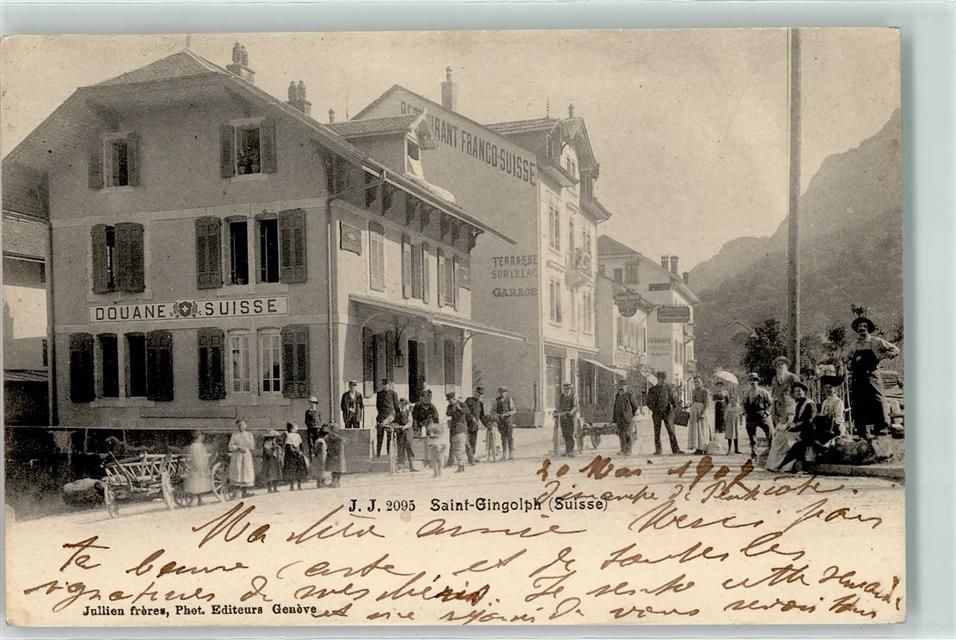 RESTAURANT FRANCO-SUISSE
TERRASSE
SUR LE LAC
GARAGE
DOUANE SUISSE
20 Mai 1904
Dimanche de Pentecôte.
J. J. 2095 Saint-Gingolph (Suisse)
Ma chère amie Merci pour
ta bonne carte et de toutes les
signatures de mes chéris. Je cette
et me réjouis de vous revoir tous
Jullien frères, Phot. Editeurs Genève